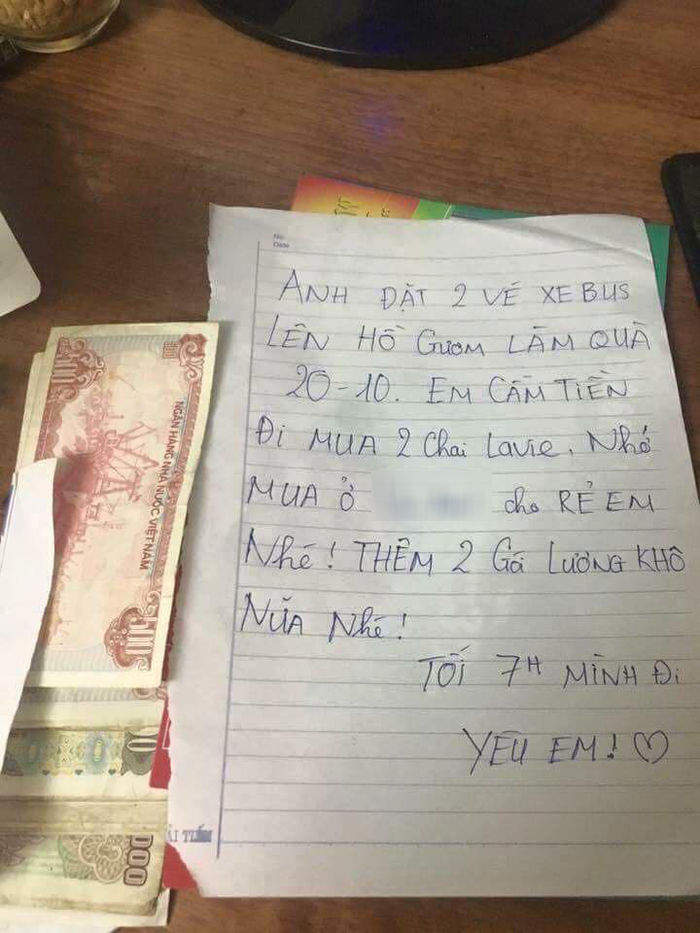 No.
Date
ANH ĐẶT 2 VÉ XE BUS
LÊN HỒ GƯƠM LÀM QUÀ
20-10. EM CẦM TIỀN
ĐI MUA 2 chai Lavie. Nhớ
MUA Ở cho RẺ EM
Nhé! THÊM 2 Gá LƯƠNG KHÔ
NỮA Nhé!
TỐI 7H MÌNH ĐI
YÊU EM! ♡
NGÂN HÀNG NHÀ NƯỚC VIỆT NAM
500
500